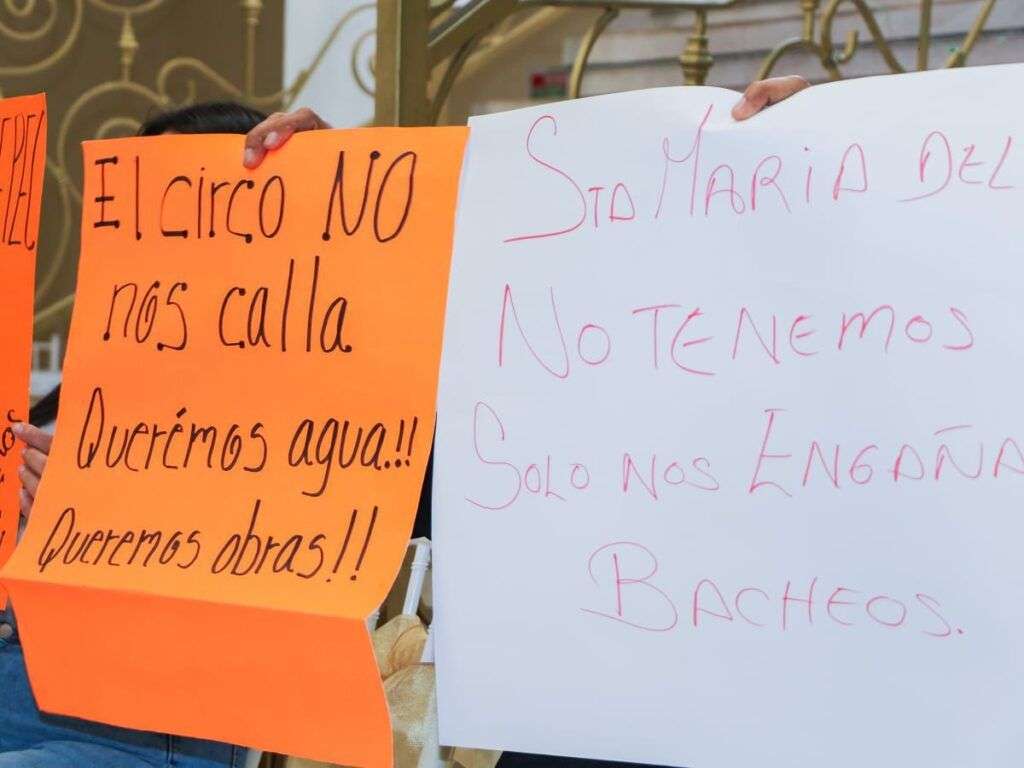 El circo NO
nos calla
Querémos agua..!!
Queremos obras!!
Sta MARIA DEL
No TENEMOS
Solo nos ENGAÑA
BACHEOS.